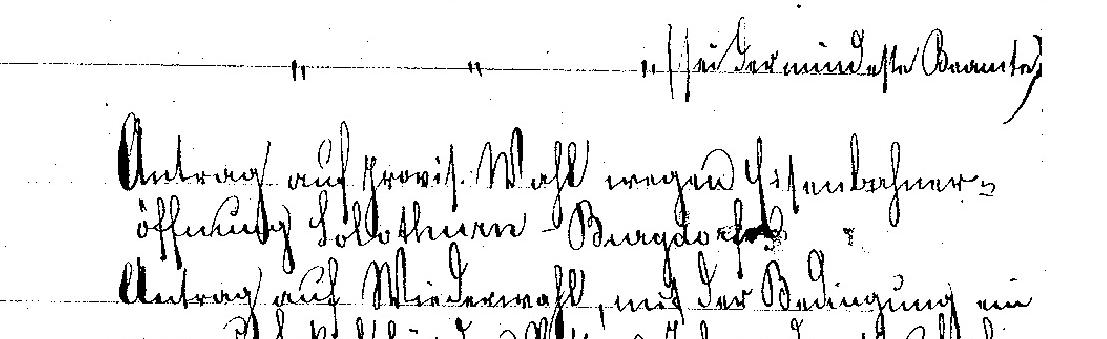 " " " (sei der mindeste Beamte)
Antrag auf provis. Wahl wegen Eisenbahner=
öffnung Solothurn - Burgdorf
Antrag auf Wiederwahl, mit der Bedingung ein